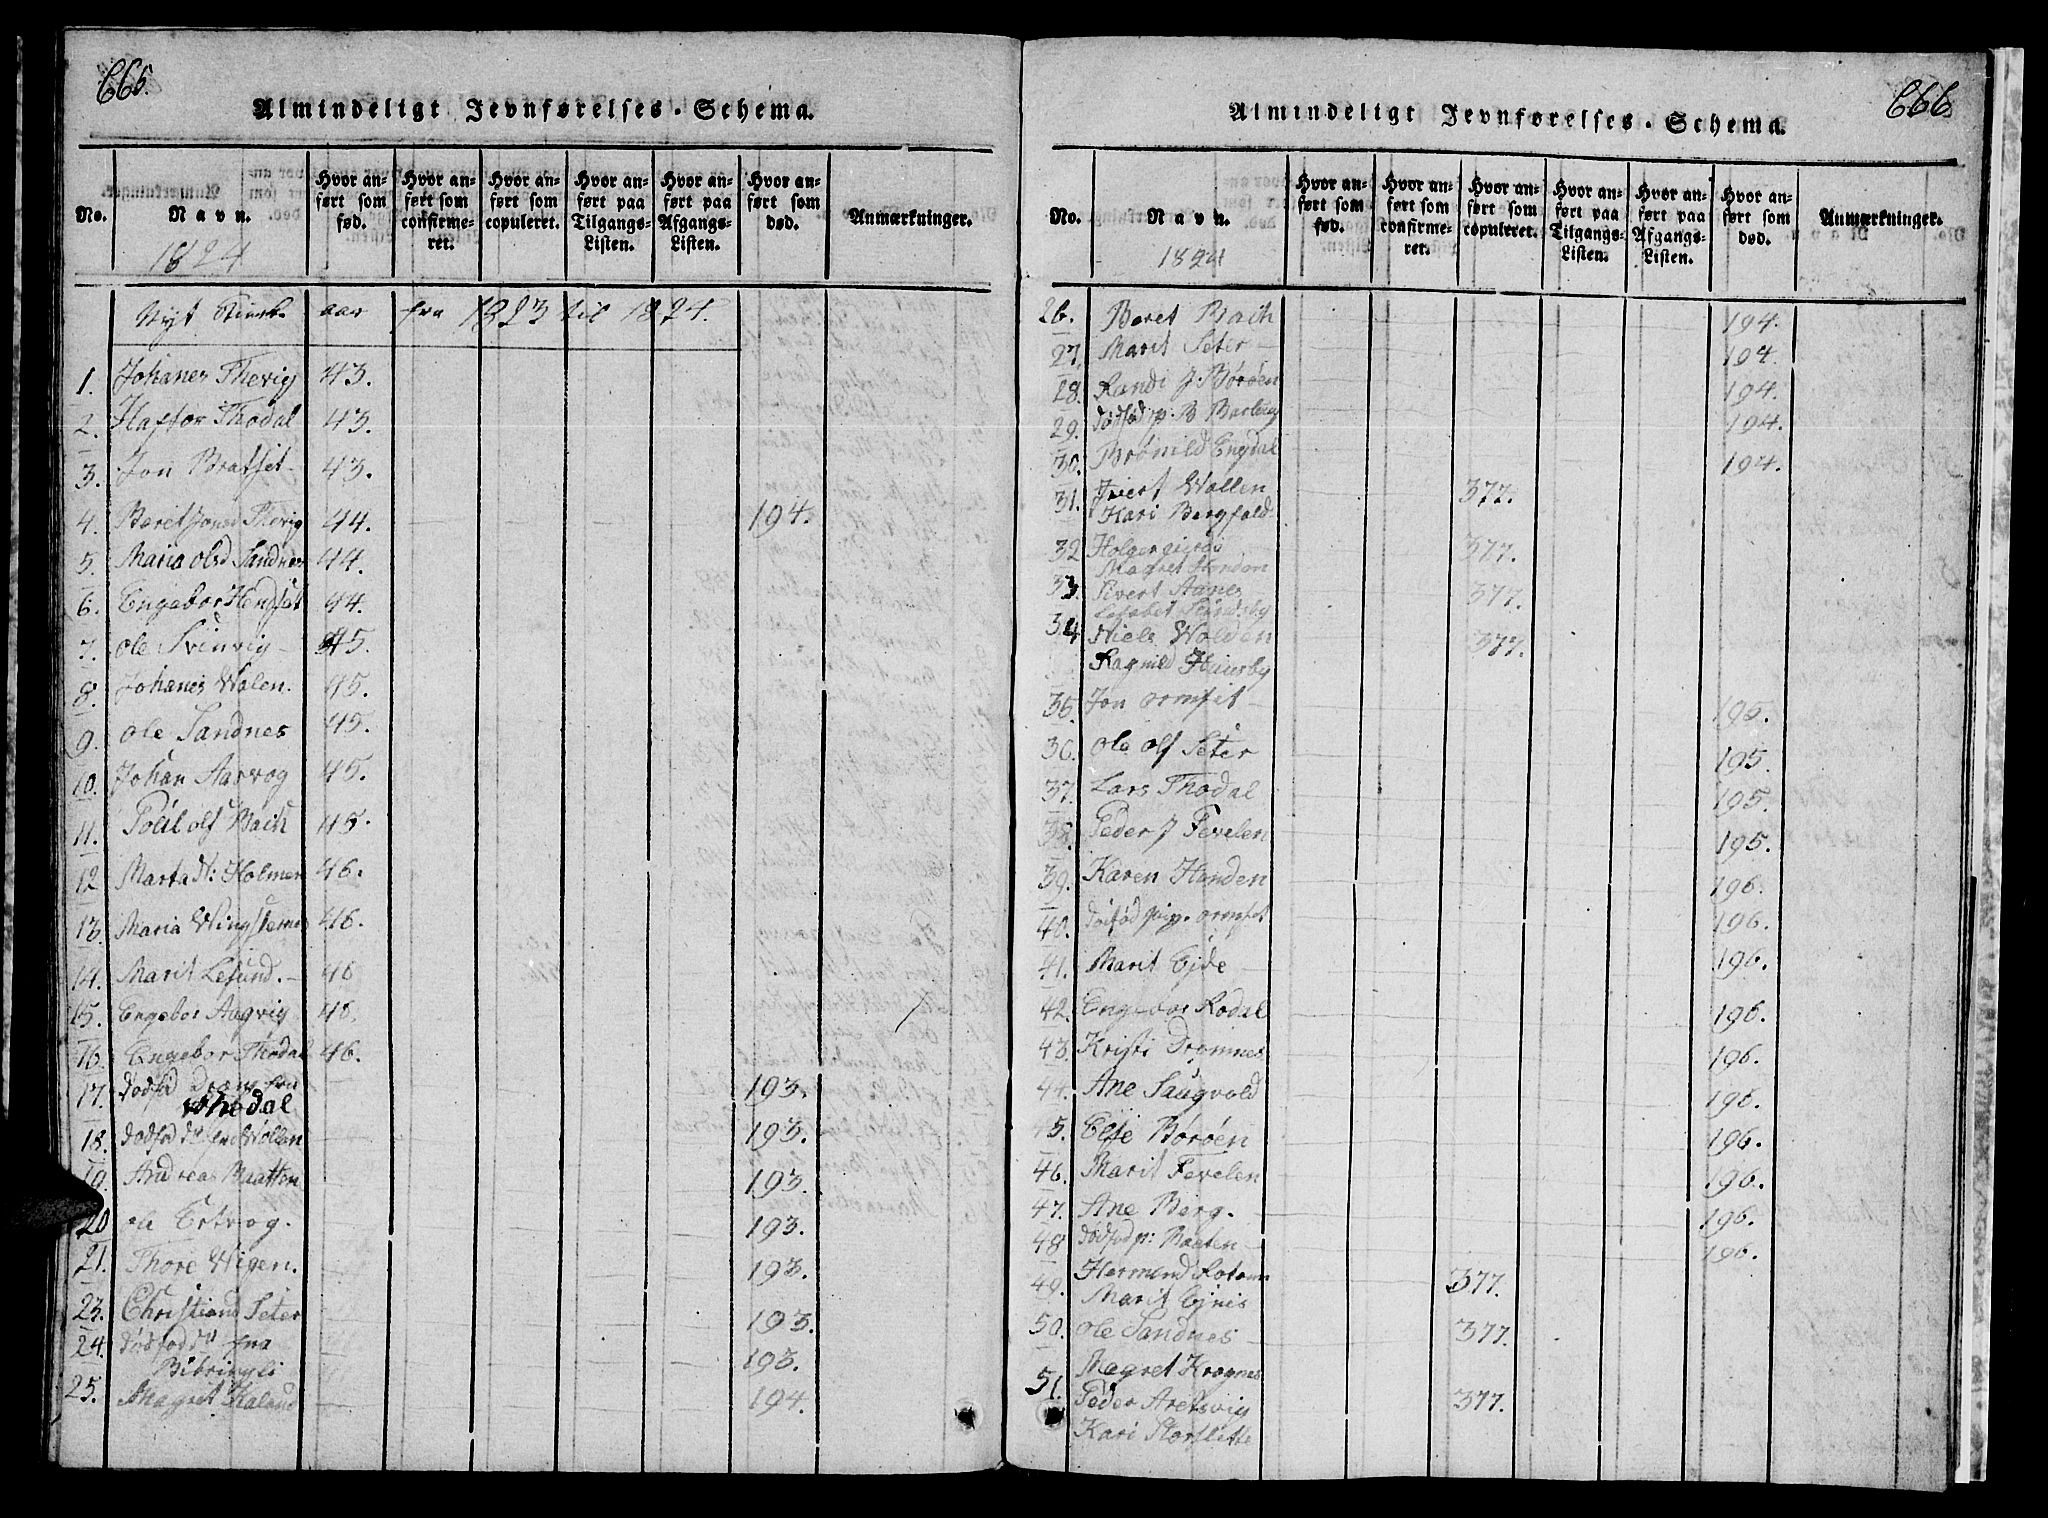 665.
Almindeligt Jevnførelses-Schema.
No.
Navn.
Hvor anført som fød.
Hvor anført som confirmeret.
Hvor anført som copuleret.
Hvor anført paa Tilgangs-Listen.
Hvor anført paa Afgangs-Listen.
Hvor anført som død.
Anmærkninger.
1824
Nyt aar fra 1823 til 1824.
1. Johanes Thevig 43.
2. Haftor Thodal 43.
3. Jon Bratset 43.
4. Beret Jonsd Thevig 44. 194.
5. Maria Olsd Sandnes 44.
6. Engebor Hendset 44.
7. Ole Svinvig 45.
8. Johanes Walen. 45.
9. Ole Sandnes 45.
10. Johan Aarvog 45.
11. Poul Ols Bach 45.
12 Marta N: Holmen 46.
13. Maria 46.
14. Marit Lesund. 46
15. Engebor Aagvig 46.
16. Engebor Thodal 46.
17. dødfød Dreng fra 193.
Thodal
18. dødfød do fra Wollen 193.
19. Andreas Maatten 193.
20 ole Ertvog. 193.
21. Thore Wigen. 193.
23. Christian Seter 193.
24. dødfød do fra 193.
25. Magret Kalund 194.
666
Almindeligt Jevnførelses-Schema.
No.
Navn.
Hvor anført som fød.
Hvor anført som confirmeret.
Hvor anført som copuleret.
Hvor anført paa Tilgangs-Listen.
Hvor anført paa Afgangs-Listen.
Hvor anført som død.
Anmærkninger.
1824
26. Beret Bach 194.
27. Marit Seter 194.
28. Randi J. Børøen 194.
29. dødfød p. 194.
30. Brønild Engdal 194.
31. Ivert Wollen 377.
Kari Bergfald
32 377.
Magret Henden
33 Sivert Aanes 377.
34 Niels Wolden 377.
Ragnild
35. Jon Ormset 195.
36. Ole Ols Seter 195.
37. Lars Thodal 195.
38. Peder J Fevelen 195.
39. Karen Henden 196.
40. dødfød pig. Ormset 196.
41. Marit Eide 196.
42. Engebor Rodal 196.
43 Kristi Dromnes 196.
44. Ane Saugvold 196.
45. Else Børøen 196.
46. Marit Fevelen 196.
47. Ane Berg. 196.
48 dødfød p: Maaten 196.
49. Hermend 377.
Marit
50. Ole Sandnes 377.
Magret Krognes
51. Peder Aresvig 377.
Kari